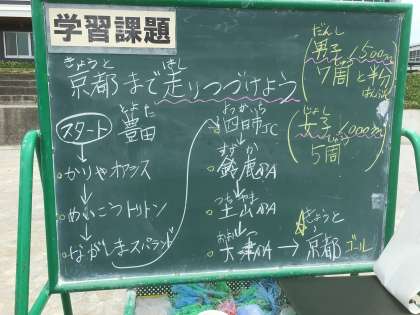 学習課題
きょうと はし
京都まで走りつづけよう
だんし
男子 1500m
しゅう
7周と半分
はんぶん
じょし
女子 1000m
しゅう
5周
とよた
スタート 豊田
かりやオアシス
めいこうトリトン
ながしまスパランド
よっかいち
四日市JC
すずか
鈴鹿PA
つちやま
土山PA
おおつ
大津PA → 京都 ゴール
きょうと